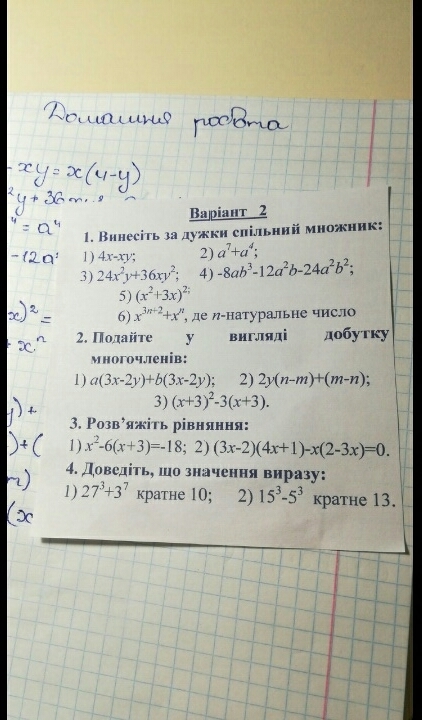 Домашня робота
- xy = x(4-y)
²y + 36
⁴ = a⁴
-12a²
x)² =
+ xⁿ
y) +
) + (
m)
(x
Варіант 2
1. Винесіть за дужки спільний множник:
1) 4x-xy; 2) a⁷+a⁴;
3) 24x²y+36xy²; 4) -8ab³-12a²b-24a²b²;
5) (x²+3x)²;
6) x³ⁿ⁺²+xⁿ, де n-натуральне число
2. Подайте у вигляді добутку
многочленів:
1) a(3x-2y)+b(3x-2y); 2) 2y(n-m)+(m-n);
3) (x+3)²-3(x+3).
3. Розв’яжіть рівняння:
1) x²-6(x+3)=-18; 2) (3x-2)(4x+1)-x(2-3x)=0.
4. Доведіть, що значення виразу:
1) 27³+3⁷ кратне 10; 2) 15³-5³ кратне 13.